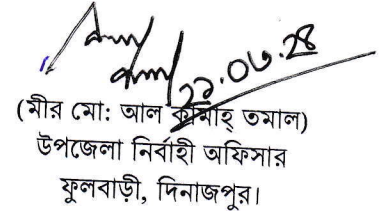 ২১.০৩.২৪
(মীর মো: আল কামাহ্ তমাল)
উপজেলা নির্বাহী অফিসার
ফুলবাড়ী, দিনাজপুর।